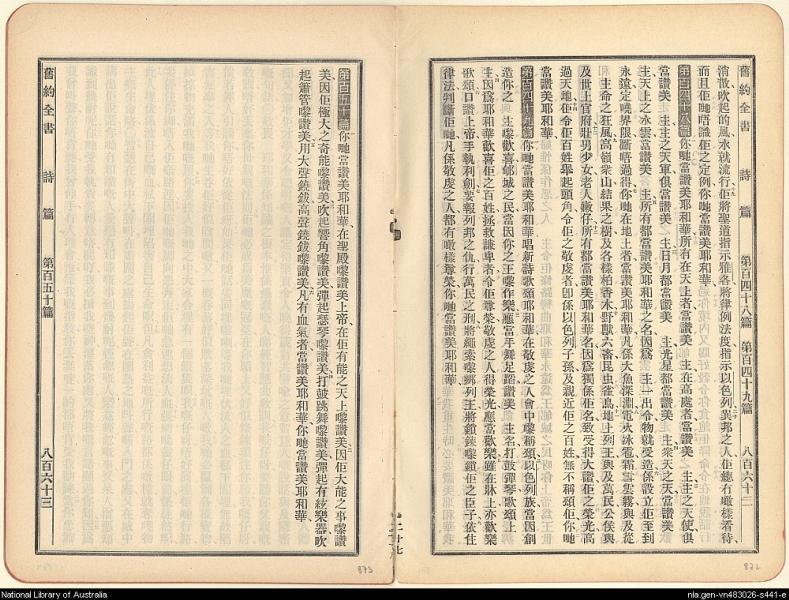 舊約全書 詩篇 第百四十八篇 第百四十九篇 八百六十二
消散吹起的風水就流行佢將聖道指示雅各將律例法度指示以色列異邦之人佢總冇噉樣看待
而且佢哋唔識佢之定例你哋當讚美耶和華
第百四十八篇 你哋當讚美耶和華所有在天上者當讚美 主在高處者當讚美 主主之天使俱
當讚美 主主之天軍俱當讚美 主日月都當讚美 主光星都當讚美 主衆天之天當讚美
主天上之水雲當讚美 主所有都當讚美耶和華之名因爲 主一出令物就受造係設立佢至到
永遠定嘵界限斷唔過得你哋在地上者當讚美耶和華凡係大魚深淵電火冰雹霜雪雲霧與及從
主命之狂風高嶺衆山結果之樹及各樣柏香木野獸六畜昆虫雀鳥地上列王與及萬民公侯與
及世上官府壯男少女老人嫩仔所有都當讚美耶和華名因爲獨係佢名致受得大讚佢之榮光高
過天地佢令佢百姓舉起頭角令佢之敬虔者卽係以色列子孫及親近佢之百姓無不稱頌佢你哋
當讚美耶和華
第百四十九篇 你哋當讚美耶和華唱新詩歌頌耶和華在敬虔之人會中嚟稱頌以色列族當因創
造你之 主嚟歡喜郇城之民當因你之王嚟作樂應當手舞足蹈讚美 主名打鼓彈琴歌頌上
主因爲耶和華歡喜佢之百姓拯救謙卑者令佢尊榮敬虔之人得榮光應當歡樂雖在牀上亦歡樂
歌頌口讚上帝手執利劍要報列邦之仇行萬民之刑將繩索嚟綁列王將鎖鍊嚟鎖佢之臣子依住
律法判斷佢哋凡係敬虔之人都有噉樣尊榮你哋當讚美耶和華
872
第百五十篇 你哋當讚美耶和華在聖殿嚟讚美上帝在佢有能之天上嚟讚美因佢大能之事嚟讚
美因佢極大之奇能嚟讚美吹起響角嚟讚美彈起瑟琴嚟讚美打鼓跳舞嚟讚美彈起有絃樂器吹
起簫管嚟讚美用大聲鐃鈸高聲鐃鈸嚟讚美凡有血氣者當讚美耶和華你哋當讚美耶和華
舊約全書 詩篇 第百五十篇 八百六十三
873
National Library of Australia
nla.gen-vn483026-s441-e